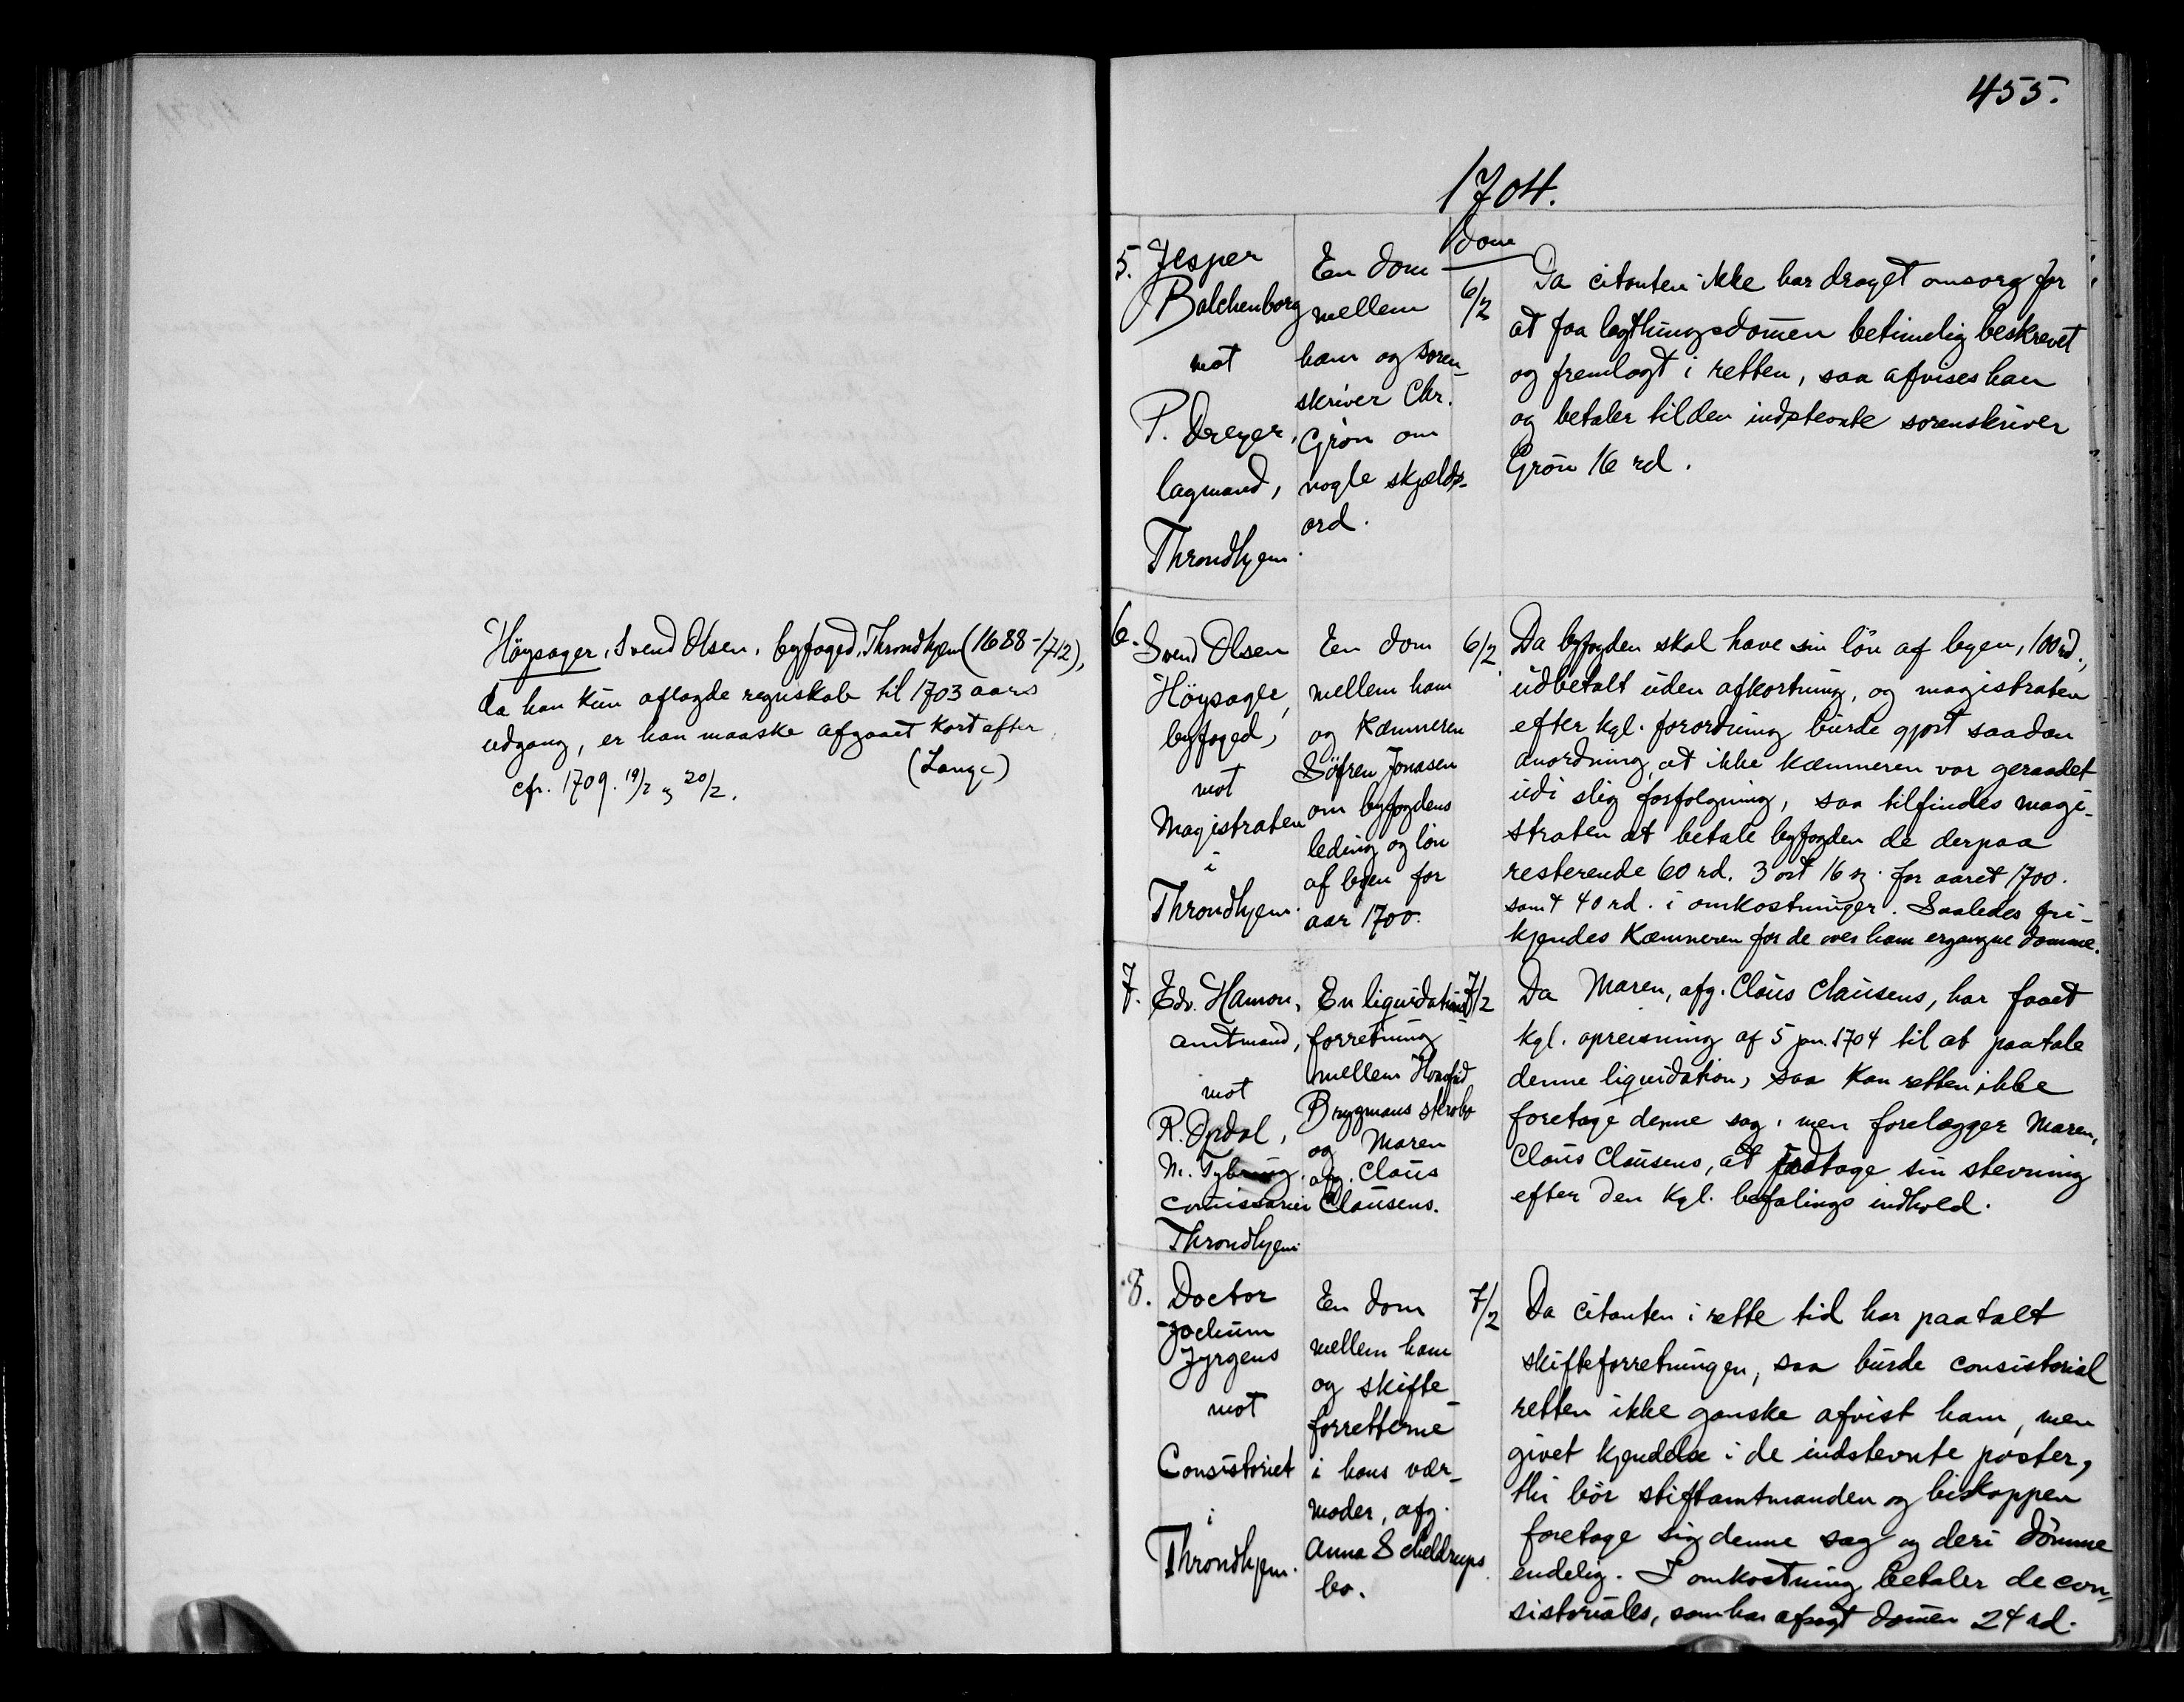 Höysager, Svend Olsen, byfoged, Throndhjem (1688-1712),
da han kun aflagde regnskab til 1703 aars
udgang, er han maaske afgaaet kort efter
(Lange)
cfr. 1709. 19/2 og 20/2.
455.
1704.
5. Jesper
Balchenborg
mot
P. Dreyer,
lagmand,
Throndhjem.
En dom
mellem
ham og soren-
skriver Chr.
Grön om
nogle skjælds-
ord.
6/2
Da citanten ikke har draget omsorg for
at faa lagthingsdomen betimelig beskrevet
og fremlagt i retten, saa afvises han
og betaler til den indstevnte sorenskriver
Grön 16 rd.
6. Svend Olsen
Höysager,
byfoged,
mot
Magistraten
i
Throndhjem.
En dom
mellem ham
og Kæmneren
Söfren Jonasen
om byfogdens
leding og lön
af byen for
aar 1700.
6/2
Da byfogden skal have sin lön af byen, 100 rd.,
udbetalt uden afkortning, og magistraten
efter kgl. forordning burde gjort saadan
anordning, at ikke kæmneren var geraadet
udi slig forfolgning, saa tilfindes magi-
straten at betale byfogden de derpaa
resterende 60 rd. 3 ort 16 sz. for aaret 1700.
samt 40 rd. i omkostninger. Saaledes fri-
kjendes Kæmneren for de over ham ergangne domme.
7. Edv. Hamon,
amtmand,
mot
R. Opdal,
N. Tybring,
comissarier
Throndhjem
En liquidations
forretning
mellem
Brygmans sterbo
og Maren
afg. Claus
Clausens.
7/2
Da Maren, afg. Claus Clausens, har faaet
kgl. opreisning af 5 jan. 1704 til at paatale
denne liquidation, saa kan retten ikke
foretage denne sag, men forelægger Maren,
Claus Clausens, at foretage sin stevning
efter den kgl. befalings indhold.
8. Doctor
Jochum
Jyrgens
mot
Consistoriet
i
Throndhjem.
En dom
mellem ham
og skifte-
forretterne
i hans vær-
moder, afg.
Anna Scheldrups
bo.
7/2
Da citanten i rette tid har paatalt
skifteforretningen, saa burde consistorial
retten ikke ganske afvist ham, men
givet kjendelse i de indstevnte poster,
thi bör stiftamtmanden og biskoppen
foretage sig denne sag og deri dömme
endelig. I omkostning betaler de con-
sistoriales, som har afsagt domen 24 rd.